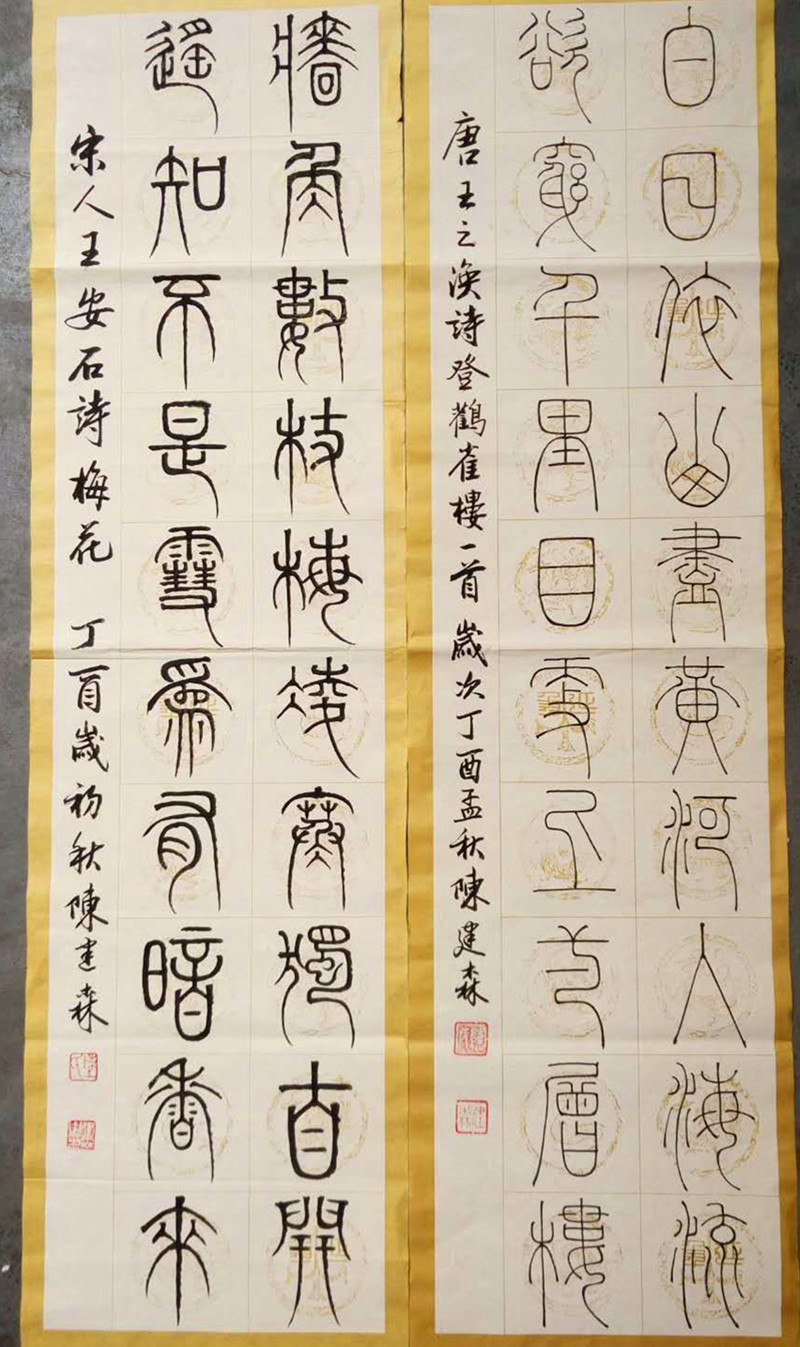 白日依山盡黃河入海流
欲窮千里目更上一層樓
唐王之渙詩登鸛雀樓一首 歲次丁酉孟秋陳建森
牆角數枝梅凌寒獨自開
遙知不是雪爲有暗香來
宋人王安石詩梅花 丁酉歲初秋陳建森